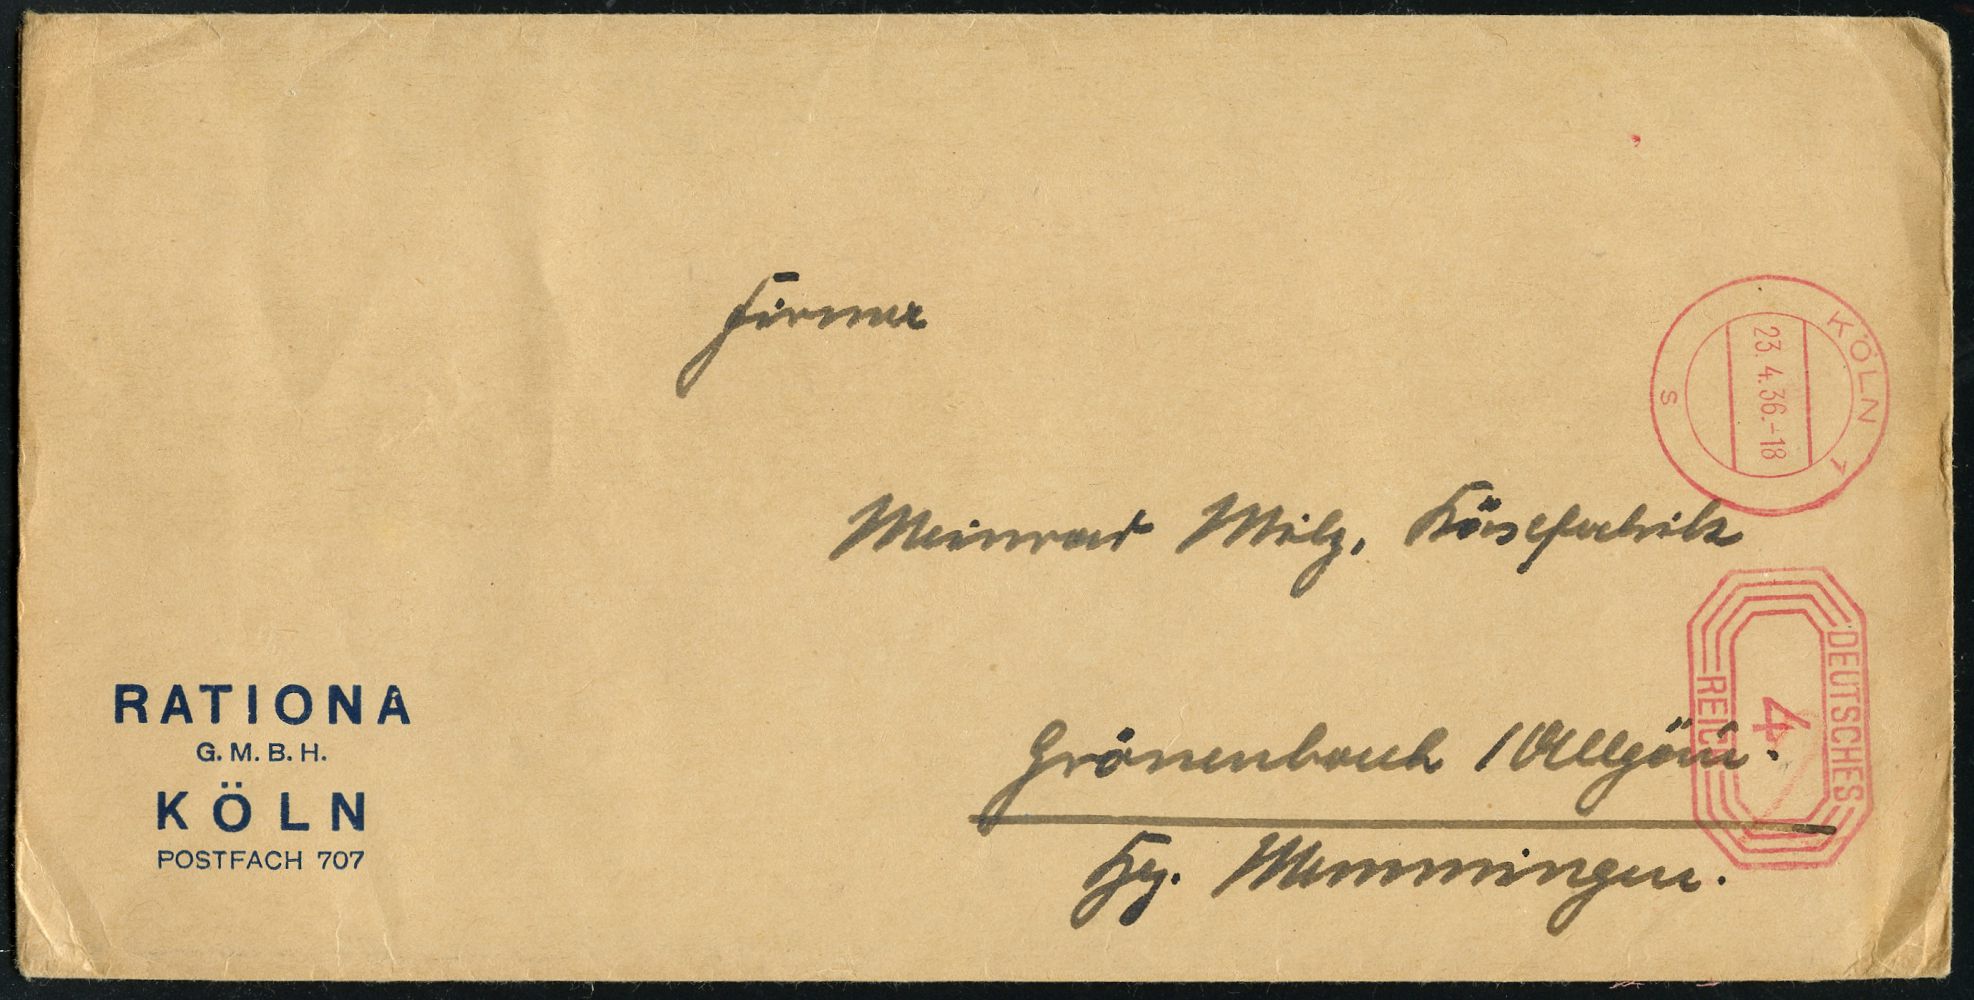 Firma
Meinrad Milz, Käsefabrik
Grönenbach / Allgäu.
Bez. Memmingen.
RATIONA
G.M.B.H.
KÖLN
POSTFACH 707
KÖLN 1
23.4.36.-18
s
DEUTSCHES
4
REICH